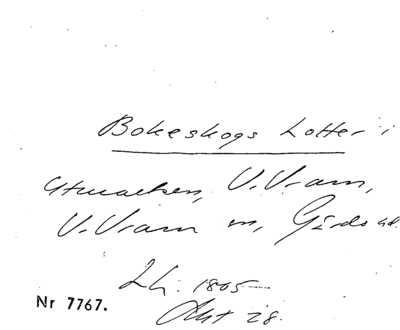 Bokeskogs Lotter i
Utmarken, V. Vram,
V. Vram m, Gärds hd.
Lh. 1805
Akt 28.
Nr 7767.